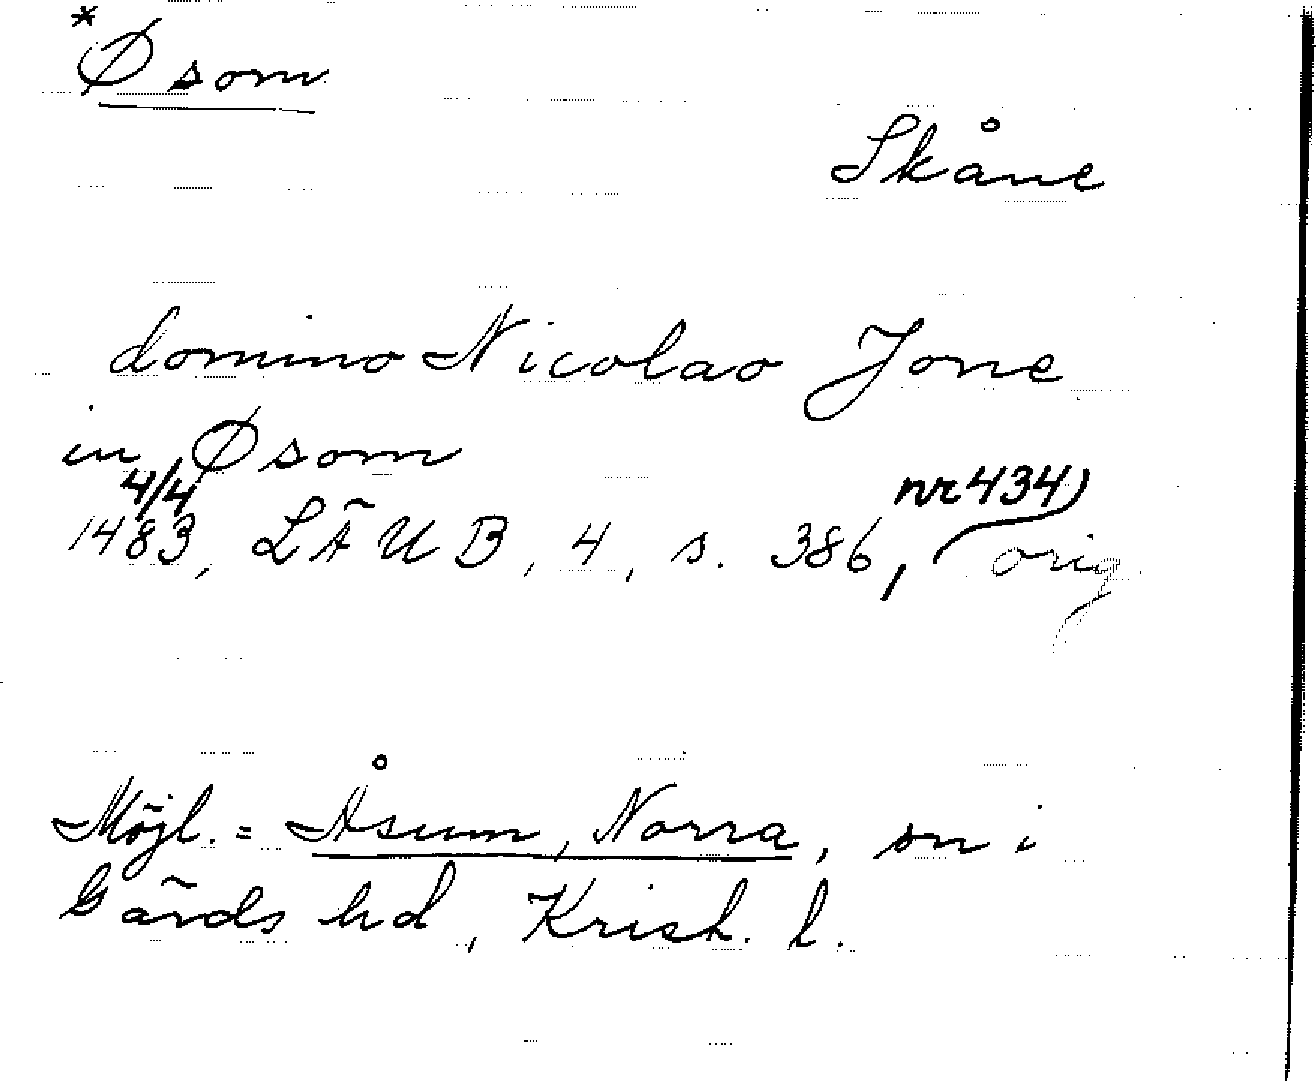 *Øsom
Skåne
domino Nicolao Jone
in Øsom
4/4 nr 434)
1483, LÄUB, 4, s. 386, orig
Möjl. = Åsum, Norra, sn i
Gärds hd, Krist. l.